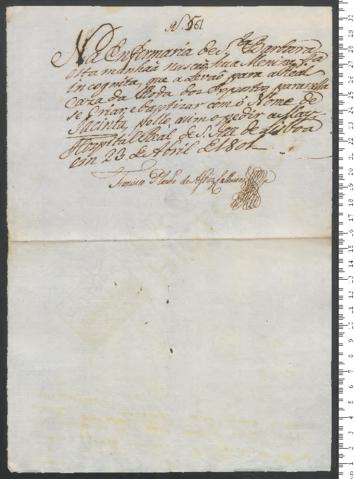 N 961
Na Enfermaria de S.ta Barbara
esta manhaã nasceu hua Menina
incognita, que a Levão para a Real
Caza da Roda dos Expostos para nella
se Criar, e baptizar com o Nome de
Jacinta, pello asim o pedir a May.
Hospital Real de S. Joze de Lisboa
em 23 de Abril de 1801
Francisco de